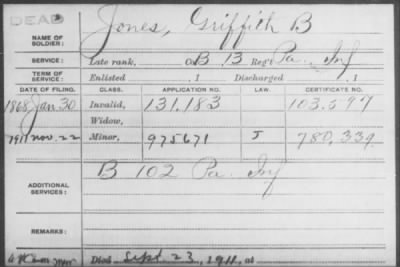 DEAD
NAME OF SOLDIER: Jones, Griffith B
SERVICE: Late rank, Co B. 13 Reg't Pa. Inf
TERM OF SERVICE: Enlisted , 1 Discharged , 1
DATE OF FILING. CLASS. APPLICATION NO. LAW. CERTIFICATE NO.
1868 Jan. 30 Invalid, 131,183 103,597
Widow,
1911 Nov. 22 Minor, 975671 J 780,339
ADDITIONAL SERVICES: B 102 Pa. Inf
REMARKS:
Died Sept 23, 1911, at